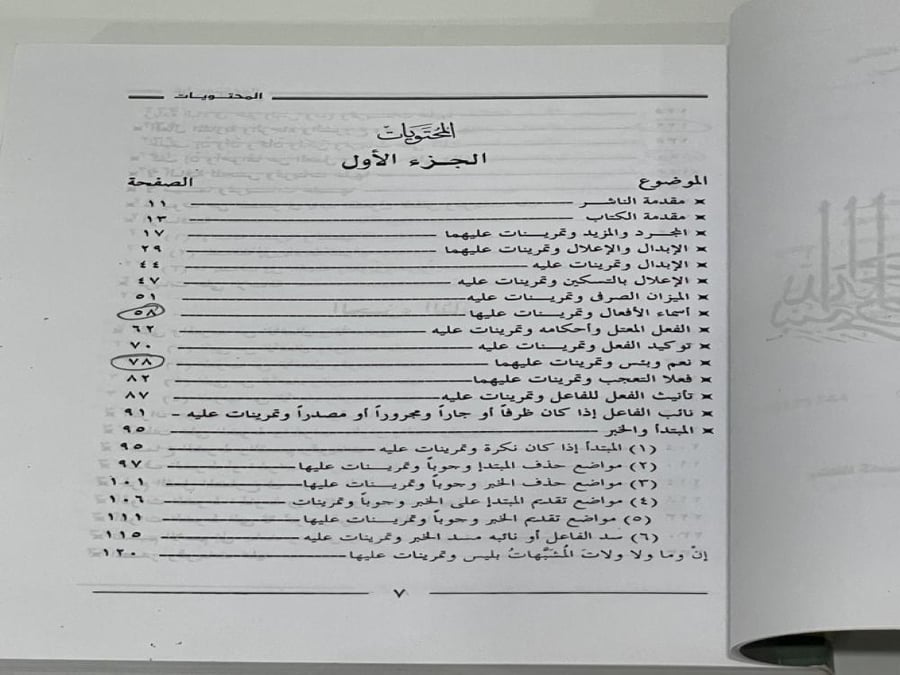 المحتويات
المُحتَويَات
الجزء الأول
الموضوع الصفحة
× مقدمة الناشر ١١
× مقدمة الكتاب ١٣
× المجرد والمزيد وتمرينات عليهما ١٧
× الإبدال والإعلال وتمرينات عليهما ٢٩
× الإبدال وتمرينات عليه ٤٤
× الإعلال بالتسكين وتمرينات عليه ٤٧
× الميزان الصرفى وتمرينات عليه ٥١
× أسماء الأفعال وتمرينات عليها ٥٨
× الفعل المعتل وأحكامه وتمرينات عليه ٦٢
× توكيد الفعل وتمرينات عليه ٧٠
× نعم وبئس وتمرينات عليهما ٧٨
× فعلا التعجب وتمرينات عليهما ٨٢
× تأنيث الفعل للفاعل وتمرينات عليه ٨٧
× نائب الفاعل إذا كان ظرفاً أو جاراً ومجروراً أو مصدراً وتمرينات عليه - ٩١
× المبتدأ والخبر ٩٥
(١) المبتدأ إذا كان نكرة وتمرينات عليه ٩٥
(٢) مواضع حذف المبتدإ وجوباً وتمرينات عليها ٩٧
(٣) مواضع حذف الخبر وجوباً وتمرينات عليها ١٠١
(٤) مواضع تقديم المبتدإ على الخبر وجوباً وتمرينات ١٠٦
(٥) مواضع تقديم الخبر وجوباً وتمرينات عليها ١١١
(٦) سد الفاعل أو نائبه مسد الخبر وتمرينات عليه ١١٥
إنْ وما ولا ولاتَ المُشبَّهاتُ بليس وتمرينات عليها ١٢٠
٧